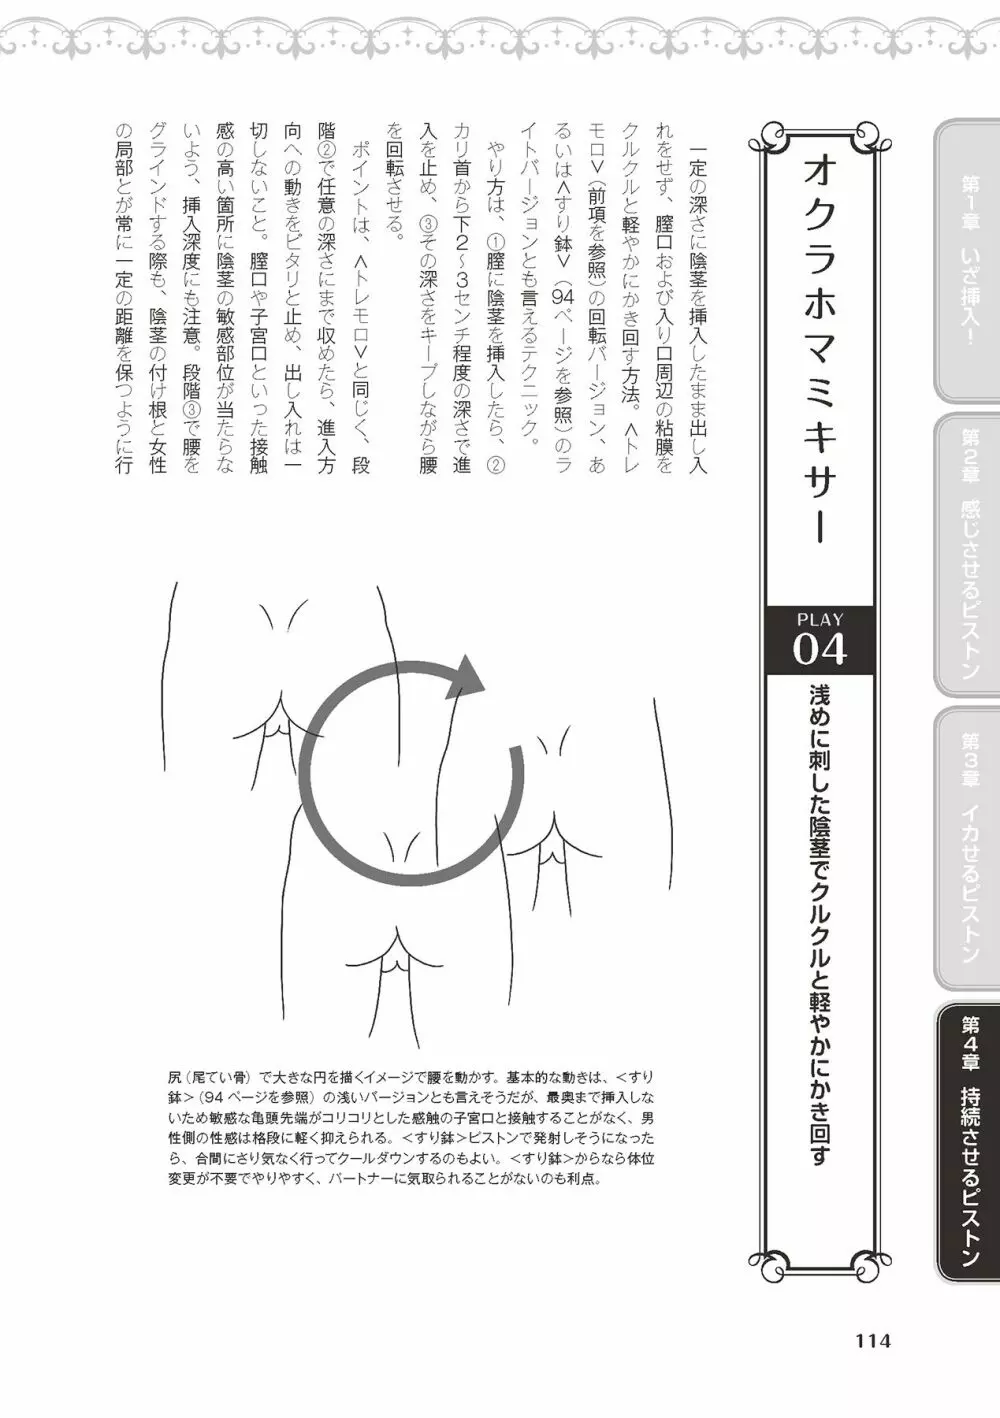 オクラホマミキサー
PLAY
04
浅めに刺した陰茎でクルクルと軽やかにかき回す
一定の深さに陰茎を挿入したまま出し入
れをせず、膣口および入り口周辺の粘膜を
クルクルと軽やかにかき回す方法。<トレ
モロ>(前項を参照)の回転バージョン、あ
るいは<すり鉢>(94ページを参照)のラ
イトバージョンとも言えるテクニック。
やり方は、①膣に陰茎を挿入したら、②
カリ首から下2〜3センチ程度の深さで進
入を止め、③その深さをキープしながら腰
を回転させる。
ポイントは、<トレモロ>と同じく、段
階②で任意の深さにまで収めたら、進入方
向への動きをピタリと止め、出し入れは一
切しないこと。膣口や子宮口といった接触
感の高い箇所に陰茎の敏感部位が当たらな
いよう、挿入深度にも注意。段階③で腰を
グラインドする際も、陰茎の付け根と女性
の局部とが常に一定の距離を保つように行
尻(尾てい骨)で大きな円を描くイメージで腰を動かす。基本的な動きは、<すり
鉢>(94ページを参照)の浅いバージョンとも言えそうだが、最奥まで挿入しな
いため敏感な亀頭先端がコリコリとした感触の子宮口と接触することがなく、男
性側の性感は格段に軽く抑えられる。<すり鉢>ピストンで発射しそうになった
ら、合間にさり気なく行ってクールダウンするのもよい。<すり鉢>からなら体位
変更が不要でやりやすく、パートナーに気取られることがないのも利点。
第1章 いざ挿入!
第2章 感じさせるピストン
第3章 イカせるピストン
第4章 持続させるピストン
114